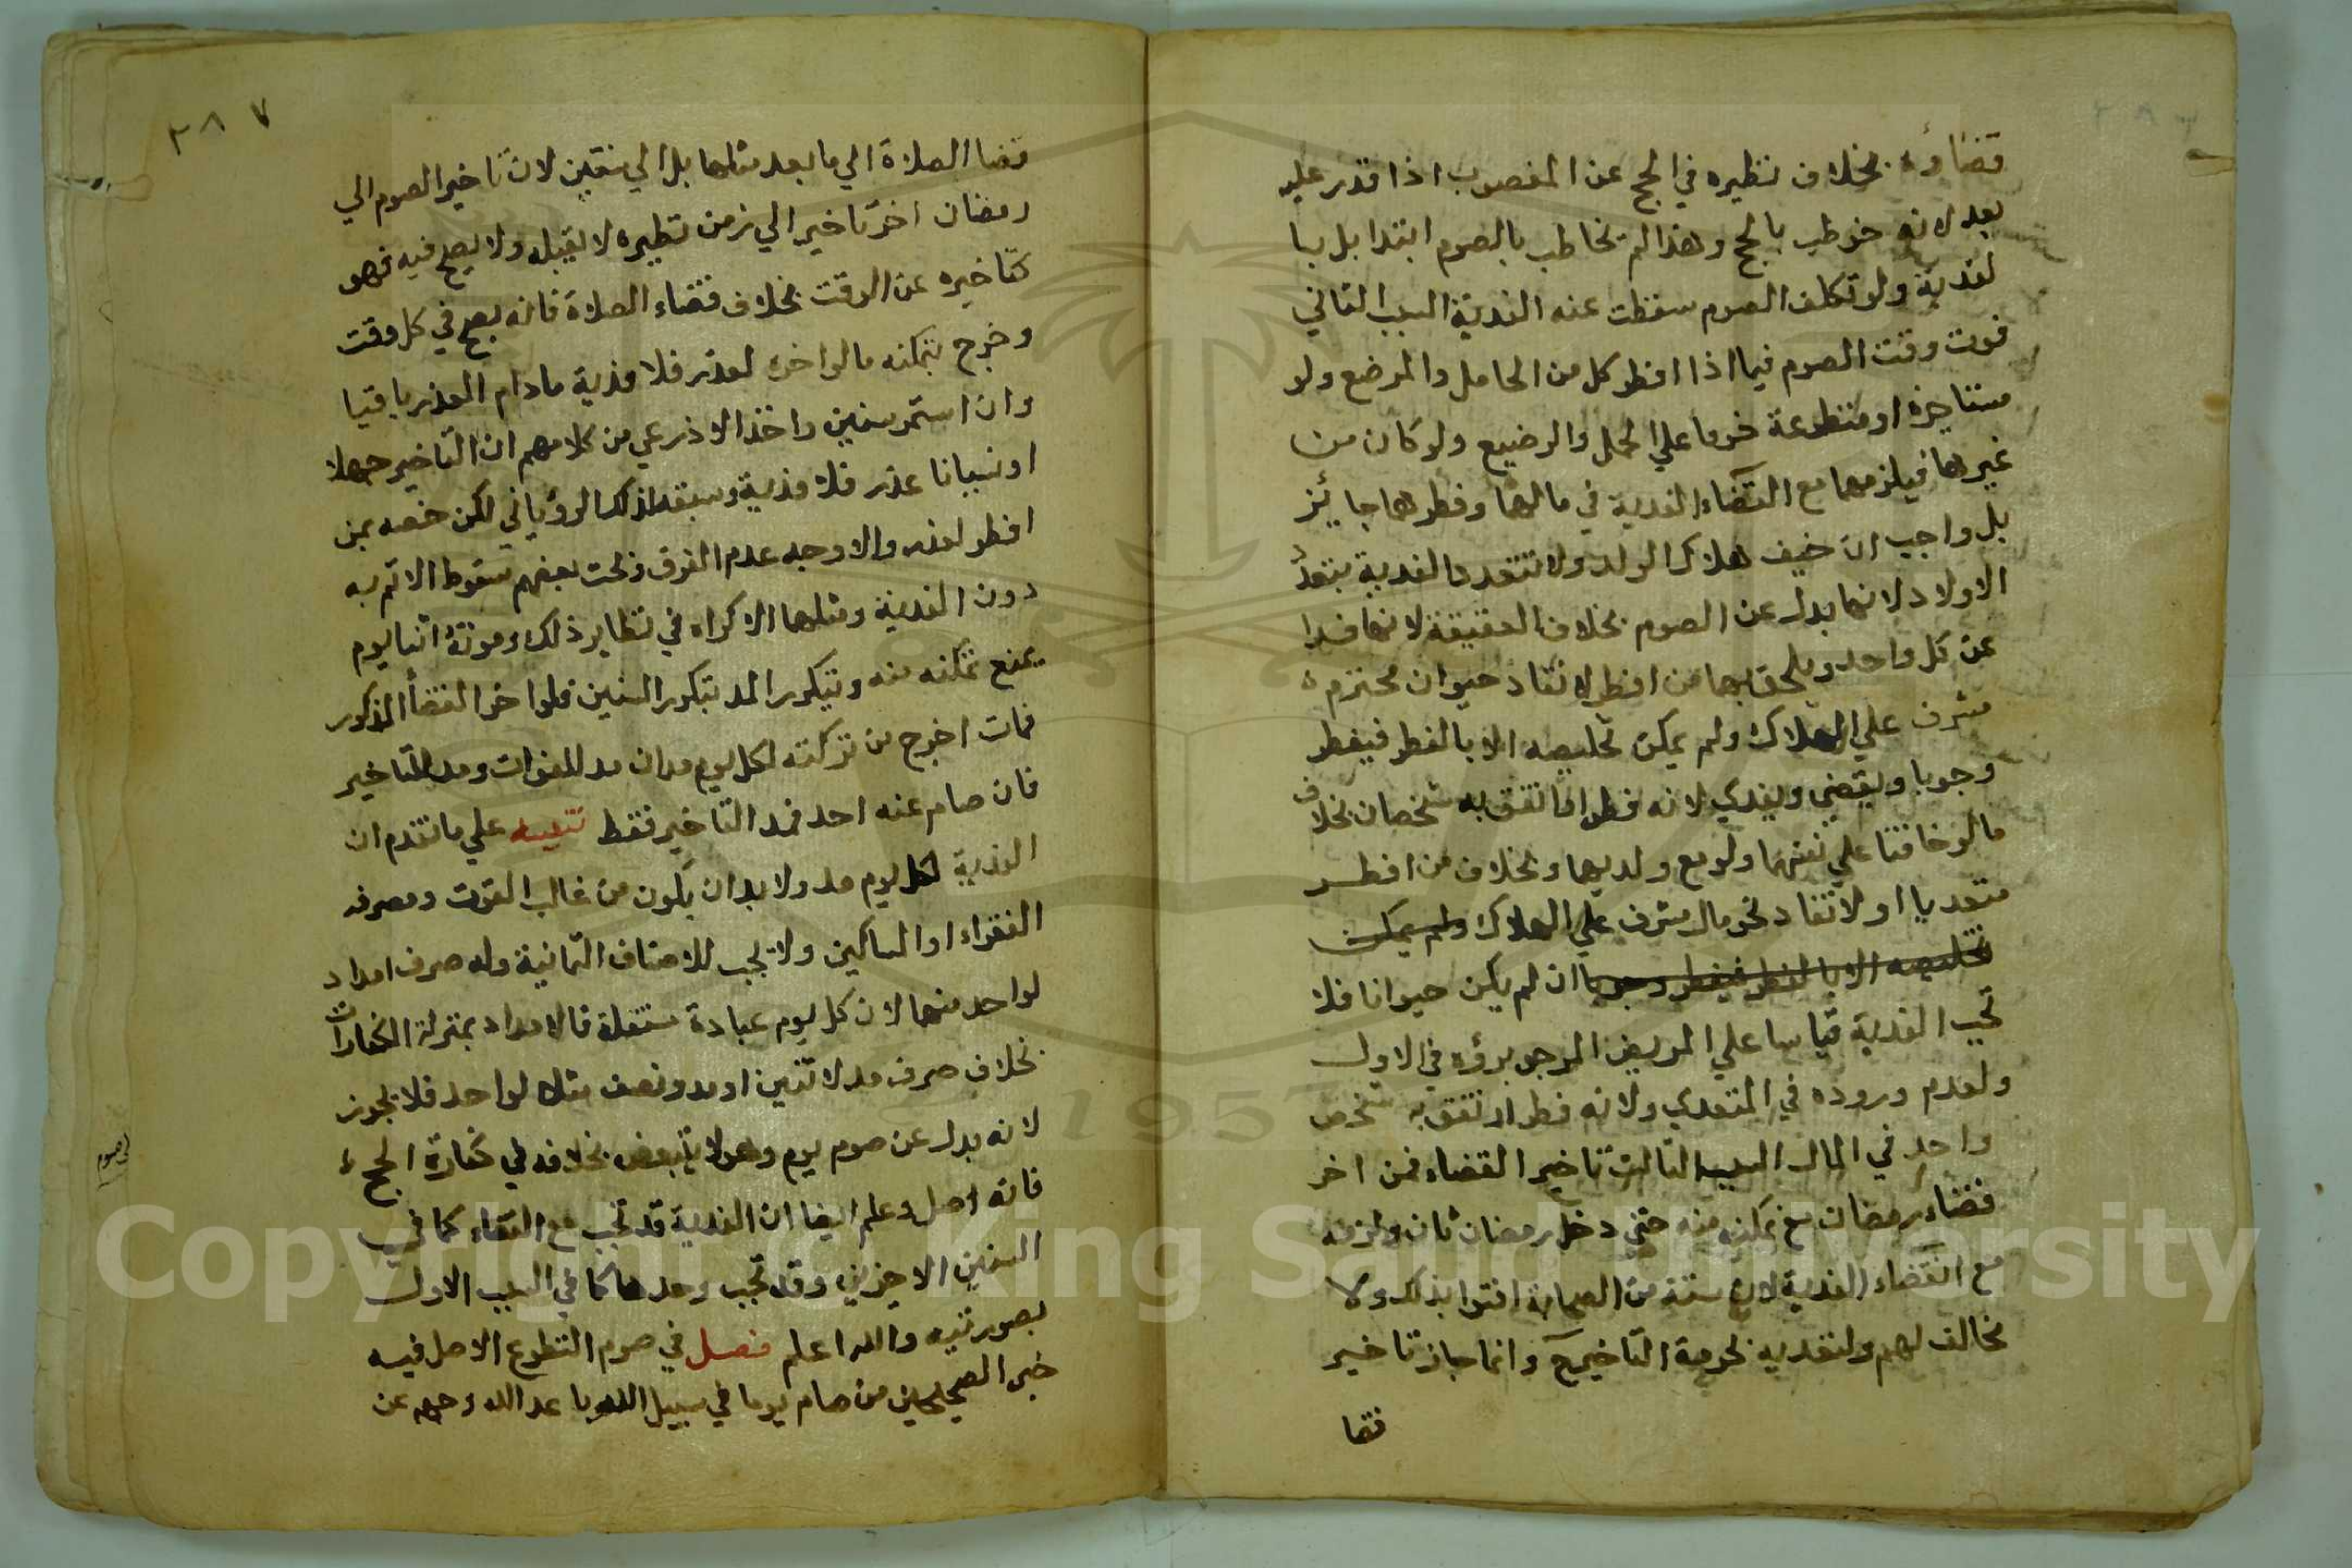 قضاؤه بخلاف نظيره في الحج عن المغصوب اذا قدر عليه
بعد لانه خوطب بالحج وهذا لم يخاطب بالصوم ابتدا بل با
لفدية ولو تكلف الصوم سقطت عنه الفدية السبب الثاني
فوت وقت الصوم فيما اذا افطر كل من الحامل والمرضع ولو
مستاجرة او متطوعة خوفا علي الحمل والرضيع ولو كان من
غيرها فيلزمهما مع القضاء الفدية في مالهما وفطرهما جايز
بل واجب ان خيف هلاك الولد ولا تتعدد الفدية بتعدد
الاولاد لانها بدل عن الصوم بخلاف العقيقة لانها فدا
عن كل واحد ويلحق بهما من افطر لانقاذ حيوان محترم
مشرف علي الهلاك ولم يمكن تخليصه الا بالفطر فيفطر
وجوبا ويقضي ويفدي لانه فطر ارتفق به شخصان بخلاف
مالو خافتا علي نفسهما ولو مع ولديهما وبخلاف من افطر
متعديا او لانقاذ نحو مال مشرف علي الهلاك ولم يمكن
تخليصه الا بالفطر فيفطر وجوبا ان لم يكن حيوانا فلا
تجب الفدية قياسا علي المريض المرجو برؤه في الاول
ولعدم وروده في المتعدي ولانه فطر ارتفق به شخص
واحد في المال السبب الثالث تاخير القضاء فمن اخر
قضاء رمضان مع تمكنه منه حتي دخل رمضان ثان ولزمه
مع القضاء الفدية لان ستة من الصحابة افتوا بذلك ولا
مخالف لهم ولتعديه لحرمة التاخير ح وانما جاز تاخير
قضا
٣٨٧
قضا الصلاة الي ما بعد مثلها بل الي سنين لان تاخير الصوم الي
رمضان اخر تاخير الي زمن نظيره لا يقبله ولا يصح فيه فهو
كتاخيره عن الوقت بخلاف قضاء الصلاة فانه يصح في كل وقت
وخرج بتمكنه مالو اخره لعذر فلا فدية مادام العذر باقيا
وان استمر سنين واخذ الاذرعي من كلامهم ان التاخير جهلا
او نسيانا عذر فلا فدية وسبقه لذلك الروياني لكن خصه بمن
افطر لعذر والاوجه عدم الفرق وبحث بعضهم سقوط الاثم به
دون الفدية ومثلهما الاكراه في نظاير ذلك وموته اثنا يوم
يمنع تمكنه منه ويتكرر المد بتكرر السنين فلو اخر القضأ المذكور
فمات اخرج من تركته لكل يوم مدان مد للفوات ومد للتاخير
فان صام عنه احد فمد التاخير فقط تنبيه علي ما تقدم ان
الفدية لكل يوم مد ولا بد ان يكون من غالب القوت ومصرفه
الفقراء او المساكين ولا تجب للاصناف الثمانية وله صرف امداد
لواحد منهما لان كل يوم عبادة مستقلة فالامداد بمنزلة الكفارات
بخلاف صرف مد لاثنين او مد ونصف مثلا لواحد فلا يجوز
لانه بدل عن صوم يوم وهو لا يتبعض بخلافه في كفارة الحج
فانه اصل وعلم ايضا ان الفدية قد تجب مع القضاء كما في
السببين الاخيرين وقد تجب وحدها كما في السبب الاول
بصورتيه والله اعلم فصل في صوم التطوع الاصل فيه
خبر الصحيحين من صام يوما في سبيل الله باعد الله وجهه عن
Copyright © King Saud University
1957